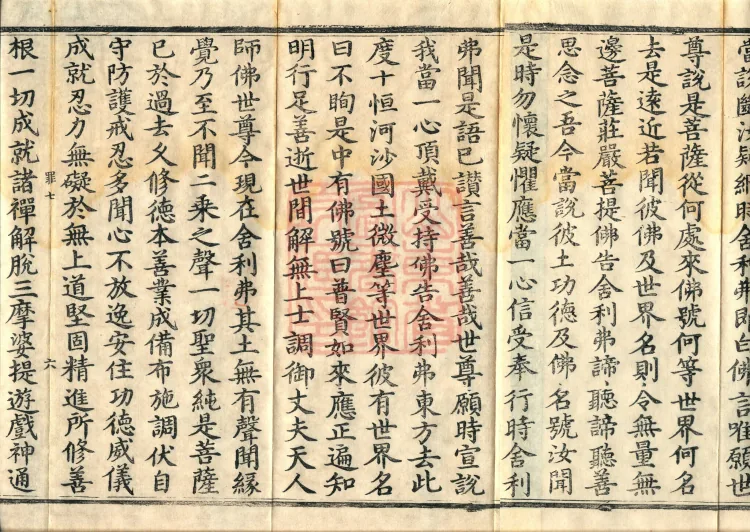 當說斷汝疑網時舍利弗即白佛言唯願世
尊說是菩薩從何處來佛號何等世界何名
去是遠近若聞彼佛及世界名則令無量無
邊菩薩莊嚴菩提佛告舍利弗諦聽諦聽善
思念之吾今當說彼土功德及佛名號汝聞
是時勿懷疑懼應當一心信受奉行時舍利
弗聞是語已讃言善哉善哉世尊願時宣說
我當一心頂戴受持佛告舍利弗東方去此
度十恒河沙國土微塵等世界彼有世界名
曰不眴是中有佛號曰普賢如來應正遍知
明行足善逝世間解無上士調御丈夫天人
師佛世尊今現在舍利弗其土無有聲聞緣
覺乃至不聞二乘之聲一切聖衆純是菩薩
已於過去久修德本善業成備布施調伏自
守防護戒忍多聞心不放逸安住功德威儀
成就忍力無礙於無上道堅固精進所修善
罪七 六
根一切成就諸禪解脫三摩婆提遊戲神通